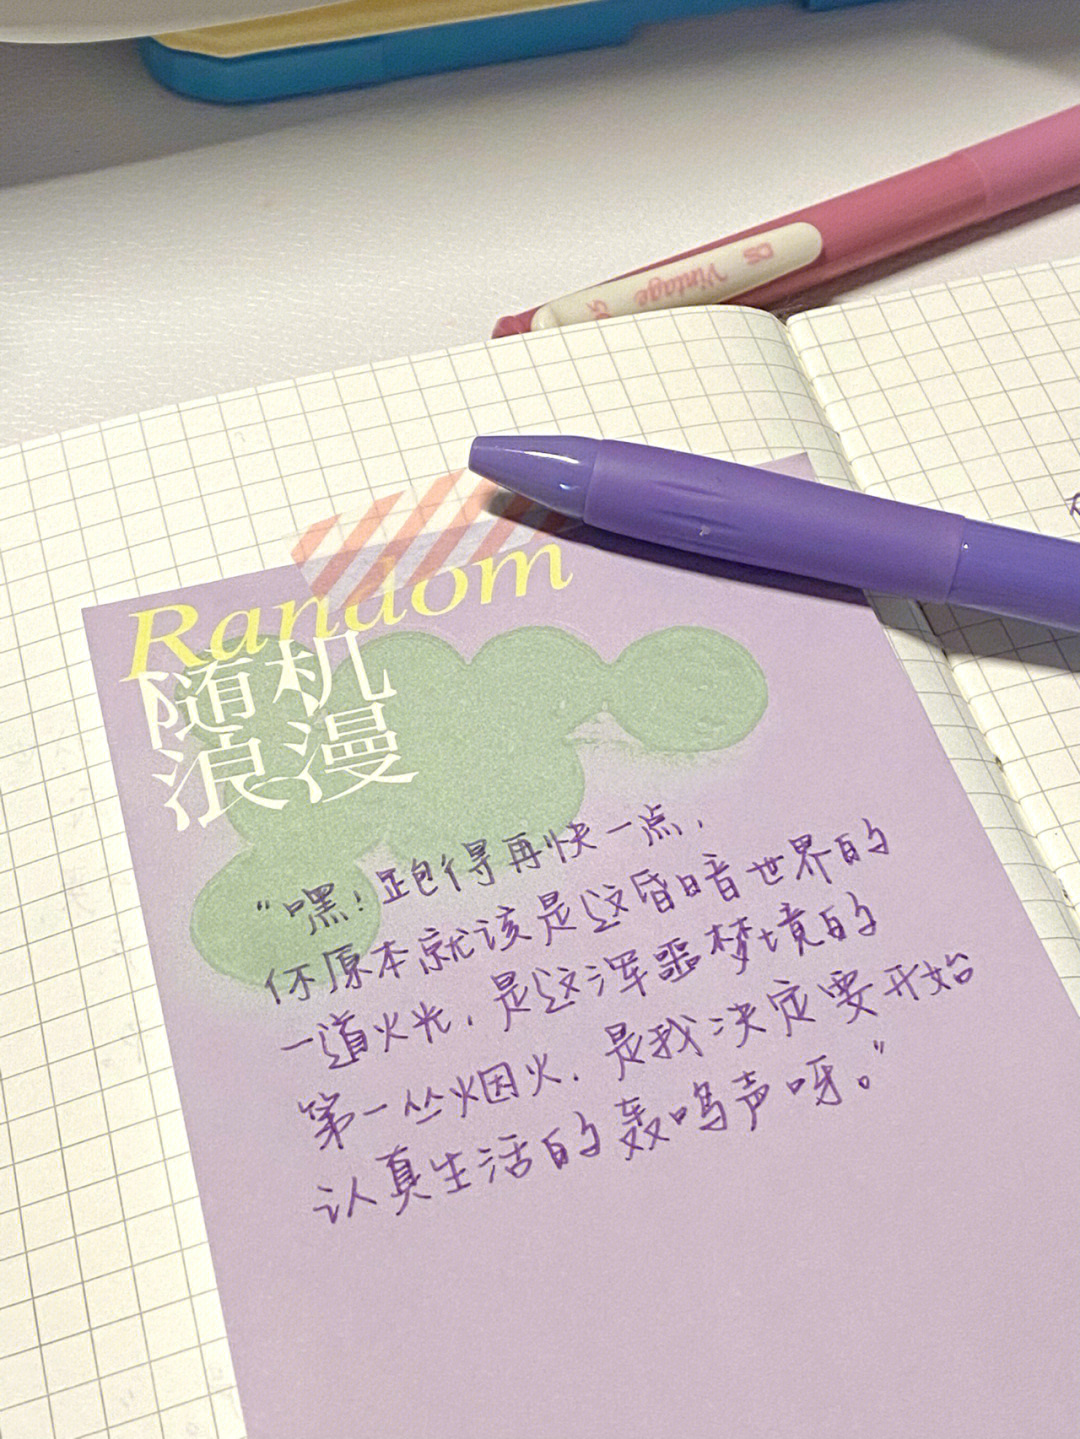 DS Vintage
Random
随机
浪漫
“嘿！跑得再快一点，
你原本就该是这昏暗世界的
一道火光，是这浑噩梦境的
第一丛烟火，是我决定要开始
认真生活的轰鸣声呀。”